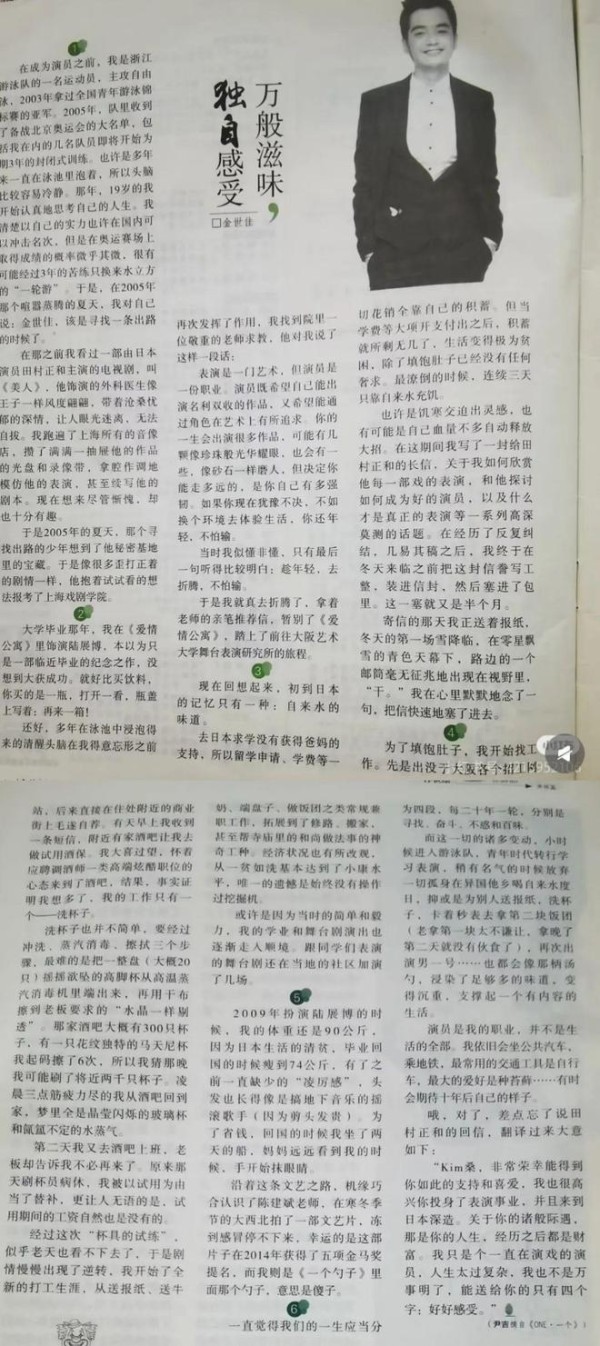 万般滋味,
独自感受
□金世佳
1
在成为演员之前,我是浙江
游泳队的一名运动员,主攻自由
泳,2003年拿过全国青年游泳锦
标赛的亚军。2005年,队里收到
了备战北京奥运会的大名单,包
括我在内的几名队员即将开始为
期3年的封闭式训练。也许是多年
来一直在泳池里泡着,所以头脑
比较容易冷静。那年,19岁的我
开始认真地思考自己的人生。我
清楚以自己的实力也许在国内可
以冲击名次,但是在奥运赛场上
取得成绩的概率微乎其微,很有
可能经过3年的苦练只换来水立方
的“一轮游”。于是,在2005年
那个喧嚣蒸腾的夏天,我对自己
说:金世佳,该是寻找一条出路
的时候了。
在那之前我看过一部由日本
演员田村正和主演的电视剧,叫
《美人》,他饰演的外科医生像
王子一样风度翩翩,带着沧桑忧
郁的深情,让人眼光迷离,无法
自拔。我跑遍了上海所有的音像
店,攒了满满一抽屉他的作品
的光盘和录像带,拿腔作调地
模仿他的表演,甚至续写他的
剧本。现在想来尽管惭愧,却
也十分有趣。
于是2005年的夏天,那个寻
找出路的少年想到了他秘密基地
里的宝藏。于是像很多歪打正着
的剧情一样,他抱着试试看的想
法报考了上海戏剧学院。
2
大学毕业那年,我在《爱情
公寓》里饰演陆展博,本以为只
是一部临近毕业的纪念之作,没
想到大获成功。就好比买饮料,
你买的是一瓶,打开一看,瓶盖
上写着:再来一箱!
还好,多年在泳池中浸泡得
来的清醒头脑在我得意忘形之前
再次发挥了作用,我找到院里一
位敬重的老师求教,他对我说了
这样一段话:
表演是一门艺术,但演员是
一份职业。演员既希望自己能出
演名利双收的作品,又希望能通
过角色在艺术上有所追求。你的
一生会出演很多作品,可能有几
颗像珍珠般光华耀眼,也会有一
些,像砂石一样磨人,但决定你
能走多远的,是你自己有多强
韧。如果你现在犹豫不决,不如
换个环境去体验生活,你还年
轻,不怕输。
当时我似懂非懂,只有最后
一句听得比较明白:趁年轻,去
折腾,不怕输。
于是我就真去折腾了,拿着
老师的亲笔推荐信,暂别了《爱
情公寓》,踏上了前往大阪艺术
大学舞台表演研究所的旅程。
3
现在回想起来,初到日本
的记忆只有一种:自来水的
味道。
去日本求学没有获得爸妈的
支持,所以留学申请、学费等一
切花销全靠自己的积蓄。但当
学费等大项开支付出之后,积蓄
就所剩无几了,生活变得极为贫
困,除了填饱肚子已经没有任何
奢求。最潦倒的时候,连续三天
只靠自来水充饥。
也许是饥寒交迫出灵感,也
有可能是自己血量不多自动释放
大招。在这期间我写了一封给田
村正和的长信,关于我如何欣赏
他每一部戏的表演,和他探讨
如何成为好的演员,以及什么
才是真正的表演等一系列高深
莫测的话题。在经历了反复纠
结,几易其稿之后,我终于在
冬天来临之前把这封信誊写工
整,装进信封,然后塞进了包
里。这一塞就又是半个月。
寄信的那天我正送着报纸,
冬天的第一场雪降临,在零星飘
雪的青色天幕下,路边的一个
邮筒毫无征兆地出现在视野里,
“干。”我在心里默默地念了一
句,把信快速地塞了进去。
4
为了填饱肚子,我开始找工
作。先是出没于大阪各个招工问
站,后来直接在住处附近的商业
街上毛遂自荐。有天早上我收到
一条短信,附近有家酒吧让我去
做试用酒保。我大喜过望,怀着
应聘调酒师一类高端炫酷职位的
心态来到了酒吧,结果,事实证
明我想多了,我的工作只有一
个——洗杯子。
洗杯子也并不简单,要经过
冲洗、蒸汽消毒、擦拭三个步
骤,最难的是把一整盘(大概20
只)摇摇欲坠的高脚杯从高温蒸
汽消毒机里端出来,再用干布
擦到老板要求的“水晶一样剔
透”。那家酒吧大概有300只杯
子,有一只花纹独特的马天尼杯
我起码擦了6次,所以我猜那晚
我可能刷了将近两千只杯子。凌
晨三点筋疲力尽的我从酒吧回到
家,梦里全是晶莹闪烁的玻璃杯
和氤氲不定的水蒸气。
第二天我又去酒吧上班,老
板却告诉我不必再来了。原来那
天刷杯员病休,我被以试用为由
当了替补,更让人无语的是,试
用期间的工资自然也是没有的。
经过这次“杯具的试炼”,
似乎老天也看不下去了,于是剧
情慢慢出现了逆转,我开始了全
新的打工生涯,从送报纸、送牛
奶、端盘子、做饭团之类常规兼
职工作,拓展到了修路、搬家,
甚至帮寺庙里的和尚做法事的神
奇工种。经济状况也有所改观,
从一贫如洗基本达到了小康水
平,唯一的遗憾是始终没有操作
过挖掘机。
或许是因为当时的简单和毅
力,我的学业和舞台剧演出也
逐渐走入顺境。跟同学们表演
的舞台剧还在当地的社区加演
了几场。
5
2009年扮演陆展博的时
候,我的体重还是90公斤,
因为日本生活的清贫,毕业回
国的时候瘦到74公斤,有了之
前一直缺少的“凌厉感”,头
发也长得像是搞地下音乐的摇
滚歌手(因为剪头发贵)。为
了省钱,回国的时候我坐了两
天的船,妈妈远远看到我的时
候,手开始抹眼睛。
沿着这条文艺之路,机缘巧
合认识了陈建斌老师,在寒冬季
节的大西北拍了一部文艺片,冻
到感冒停不下来,幸运的是这部
片子在2014年获得了五项金马奖
提名,而我则是《一个勺子》里
面那个勺子,意思是傻子。
6
一直觉得我们的一生应当分
为四段,每二十年一轮,分别是
寻找、奋斗、不惑和百味。
而这一切的诸多变动,小时
候进入游泳队,青年时代转行学
习表演,稍有名气的时候放弃
一切孤身在异国他乡喝自来水度
日,抑或是为别人送报纸,洗杯
子,卡着秒表去拿第二块饭团
(老拿第一块太不谦让,拿晚了
第二天就没有伙食了),再次出
演男一号……也都会像那柄汤
勺,浸染了足够多的味道,变
得沉重,支撑起一个有内容的
生活。
演员是我的职业,并不是生
活的全部。我依旧会坐公共汽车,
乘地铁,最常用的交通工具是自行
车,最大的爱好是种苔藓……有时
会期待十年后自己的样子。
哦,对了,差点忘了说田
村正和的回信,翻译过来大意
如下:
“Kim桑,非常荣幸能得到
你如此的支持和喜爱,我也很高
兴你投身了表演事业,并且来到
日本深造。关于你的诸般际遇,
那是你的人生,经历之后都是财
富。我只是个一直在演戏的演
员,人生太过复杂,我也不是万
事明了,能送给你的只有四个
字:好好感受。”
(尹吉 摘自《ONE·一个》)